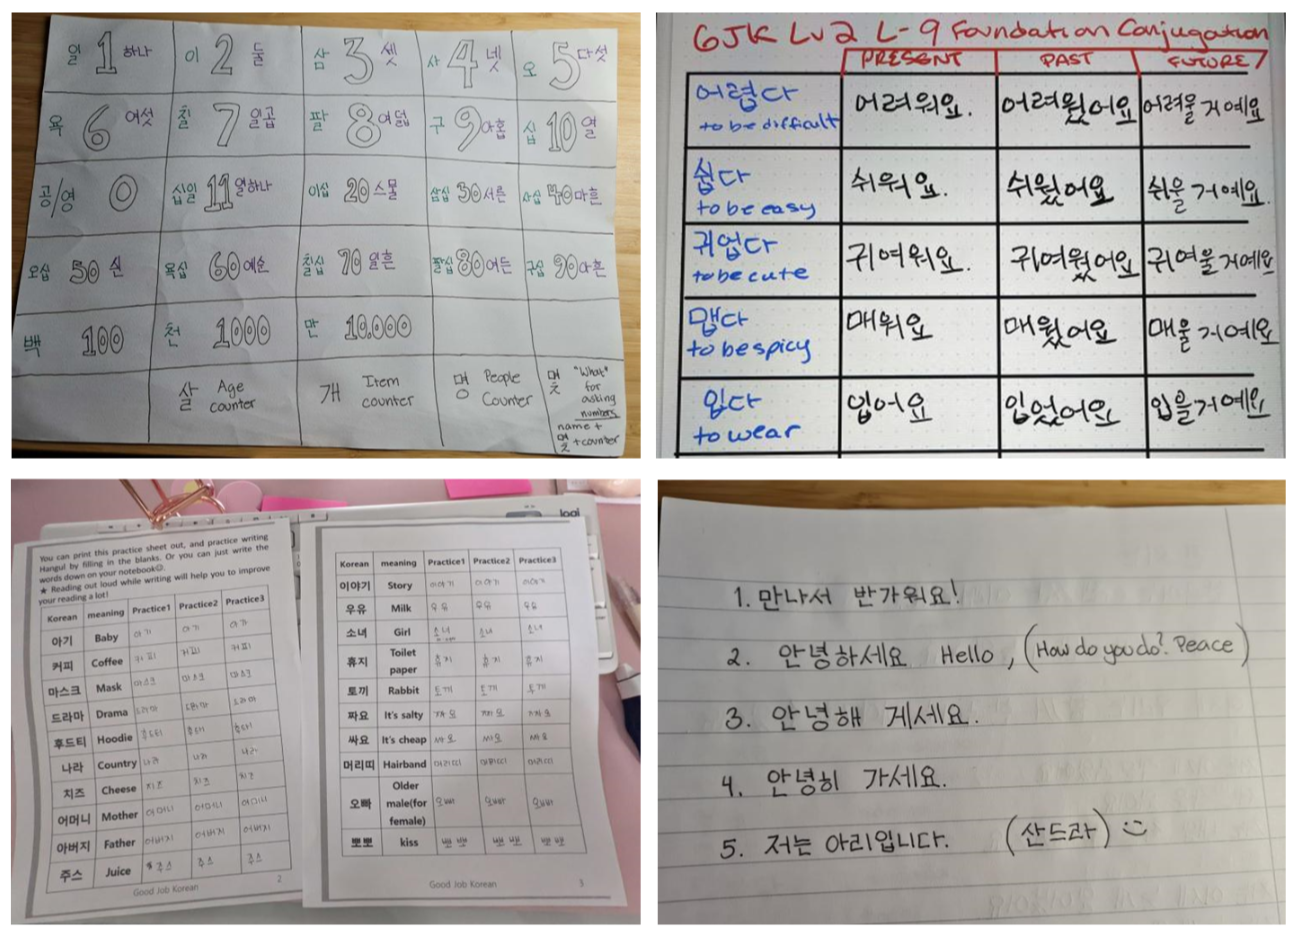 일 1 하나 이 2 둘 삼 3 셋 사 4 넷 오 5 다섯
육 6 여섯 칠 7 일곱 팔 8 여덟 구 9 아홉 십 10 열
공/영 0 십일 11 열하나 이십 20 스물 삼십 30 서른 사십 40 마흔
오십 50 쉰 육십 60 예순 칠십 70 일흔 팔십 80 여든 구십 90 아흔
백 100 천 1000 만 10.000
살 Age counter 개 Item counter 명 People Counter 몇 "What" for asking numbers
name + 몇 + counter
GJK Lv2 L-9 Foundation Conjugation
PRESENT PAST FUTURE
어렵다 to be difficult 어려워요. 어려웠어요 어려울 거예요
쉽다 to be easy 쉬워요. 쉬웠어요 쉬울 거예요.
귀업다 to be cute 귀여워요. 귀여웠어요 귀여울 거예요
맵다 to be spicy 매워요 매웠어요 매울 거예요
입다 to wear 입어요 입었어요 입을 거예요
You can print this practice sheet out, and practice writing
Hangul by filling in the blanks. Or you can just write the
words down on your notebook☺.
★ Reading out loud while writing will help you to improve
your reading a lot!
Korean meaning Practice1 Practice2 Practice3
아기 Baby 아기 아기 아기
커피 Coffee 커피 커피 커피
마스크 Mask 마스크 마스크 마스크
드라마 Drama 드라마 드라마 드라마
후드티 Hoodie 후드티 후드티 후드티
나라 Country 나라 나라 나라
치즈 Cheese 치즈 치즈 치즈
어머니 Mother 어머니 어머니 어머니
아버지 Father 아버지 아버지 아버지
주스 Juice 주스 주스 주스
Good Job Korean 2
logi
Korean meaning Practice1 Practice2 Practice3
이야기 Story 이야기 이야기 이야기
우유 Milk 우유 우유 우유
소녀 Girl 소녀 소녀 소녀
휴지 Toilet paper 휴지 휴지 휴지
토끼 Rabbit 토끼 토끼 토끼
짜요 It's salty 짜요 짜요 짜요
싸요 It's cheap 싸요 싸요 싸요
머리띠 Hairband 머리띠 머리띠 머리띠
오빠 Older male(for female) 오빠 오빠 오빠
뽀뽀 kiss
Good Job Korean 3
1. 만나서 반가워요!
2. 안녕하세요 Hello, (How do you do? Peace)
3. 안녕해 게세요.
4. 안녕히 가세요.
5. 저는 아리입니다. (산드라)